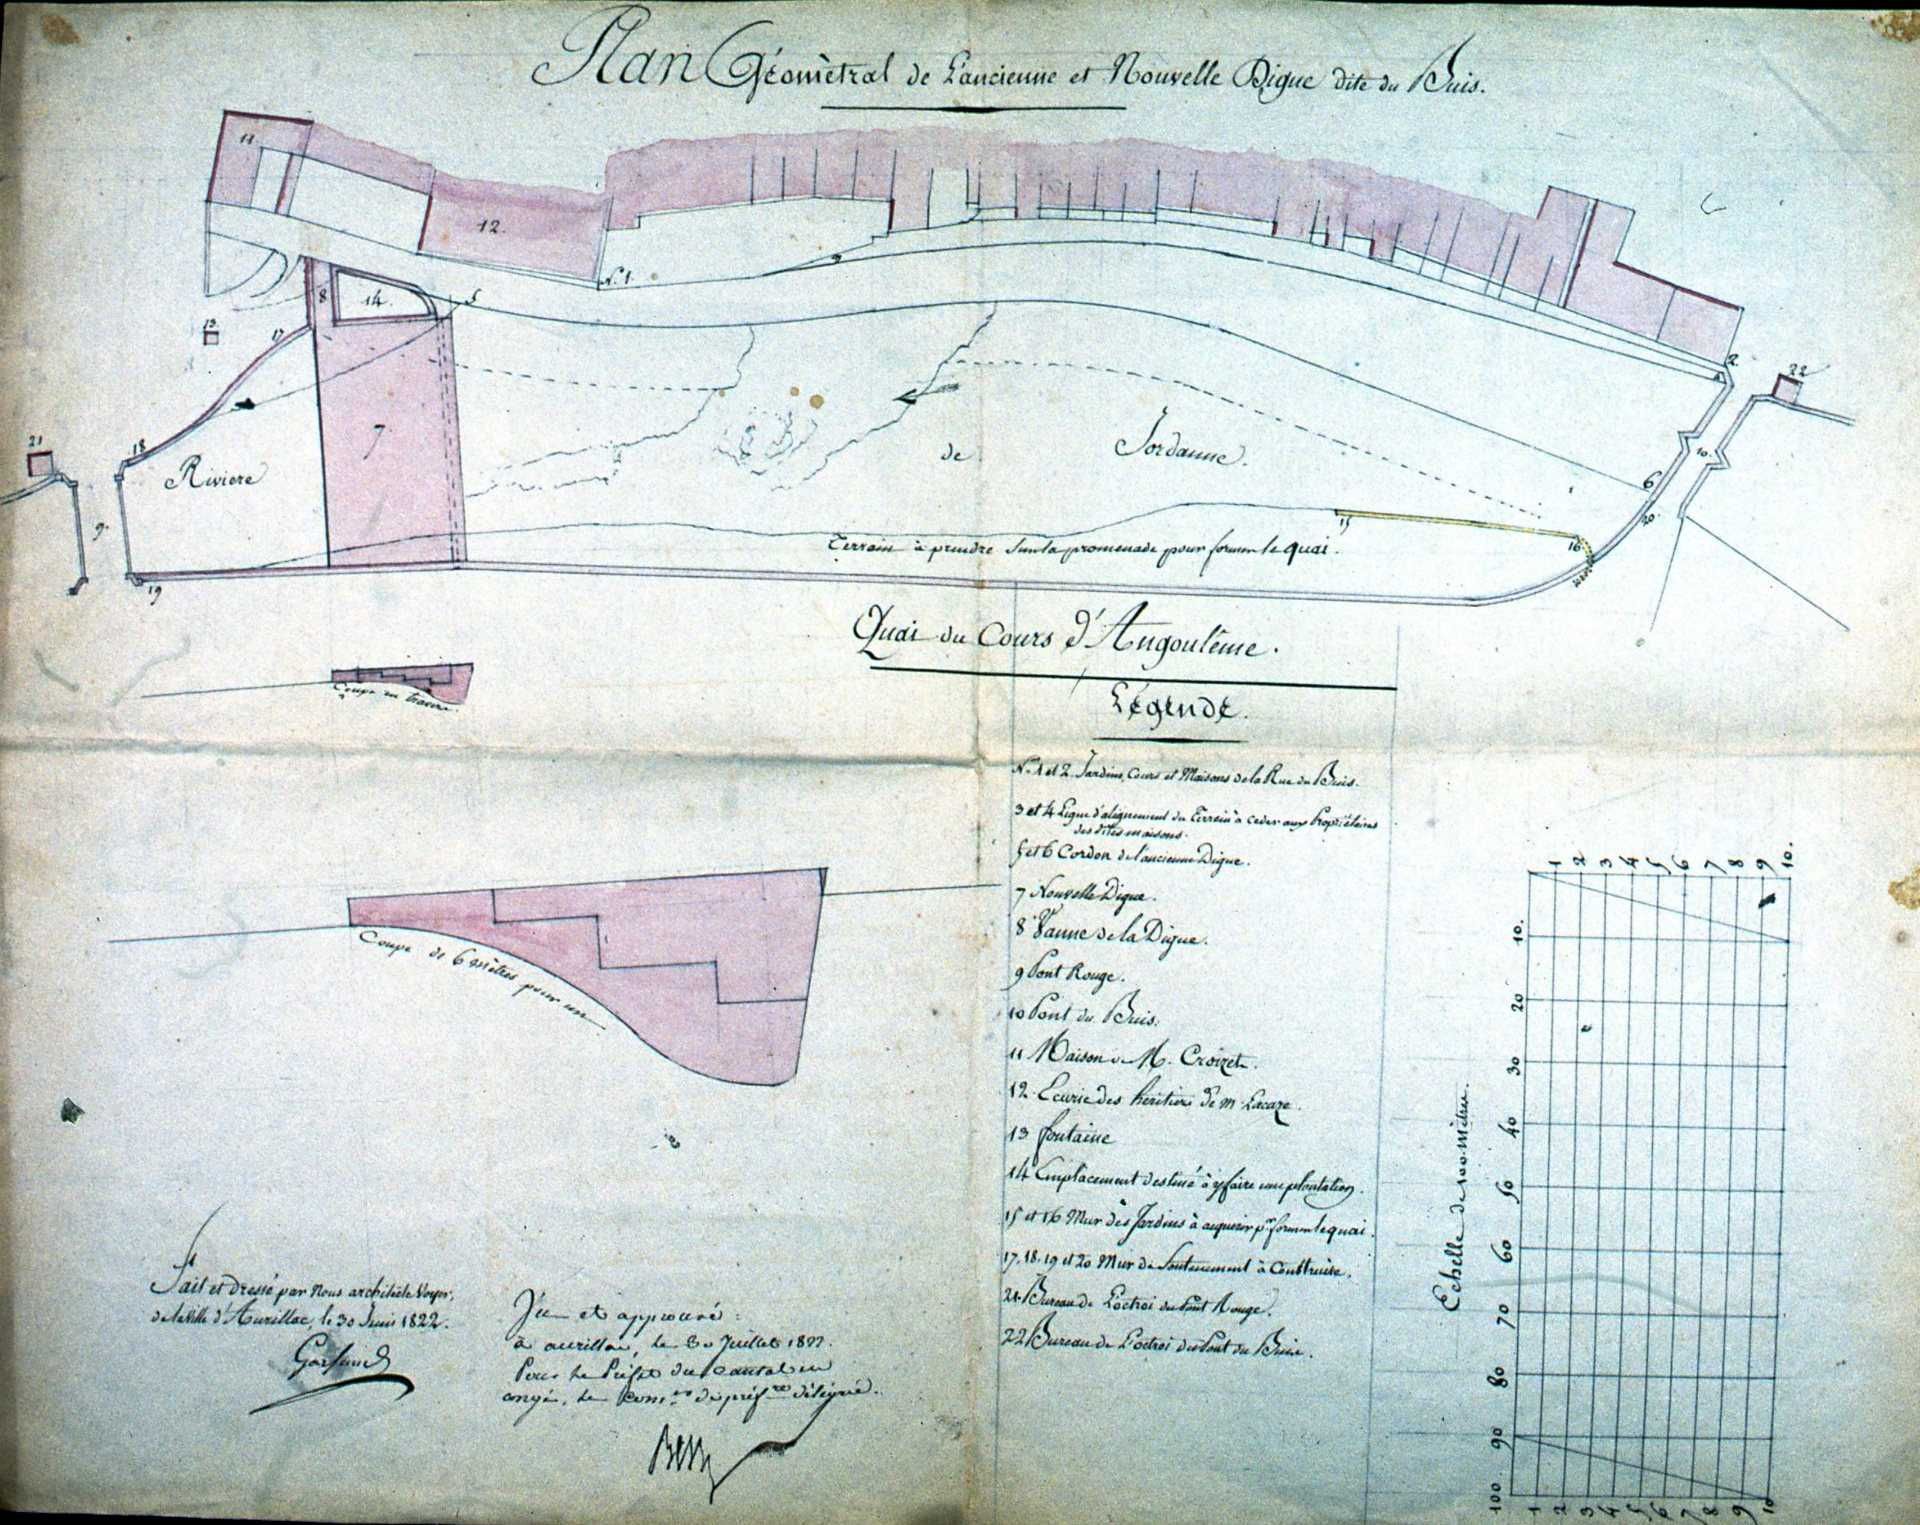 Plan Géométral de L'ancienne et Nouvelle Digue dite du Buis.
11.
12.
N. 1.
3
8
14.
5
13
17
7
18
21
9.
19
Riviere
de
Jordanne.
2.
4
22
10.
6
20
15
16
Terrain à prendre sur la promenade pour former le quai.
Quai du Cours d'Angoulême.
Coupe en travers.
Coupe de 6 mètres pour un
Légende.
N. 1 et 2. Jardins, Cours et Maisons de la Rue du Buis.
3 et 4 Ligne d'alignement du Terrein à ceder aux Propriétaires
des dites maisons.
5 et 6 Cordon de l'ancienne Digue.
7 Nouvelle Digue.
8 Vanne de la Digue.
9 Pont Rouge.
10 Pont du Buis.
11 Maison de M. Croizet.
12 Ecurie des héritiers de m. Lacaze.
13 fontaine
14 Emplacement destiné à y faire une plantation.
15 et 16 Mur des Jardins à acquerir pr. former le quai.
17, 18, 19 et 20 Mur de Soutenement à Construire.
21. Bureau de L'octroi du Pont Rouge.
22 Bureau de L'octroi du Pont du Buis.
Fait et dressé par Nous architècte Voyer,
de la Ville d'Aurillac, le 30 Juin 1822.
Vu et approuvé:
à aurillac, le 30 Juillet 1822.
Pour le Préfet du Cantal en
congé, le Coner de préfre délégué.
Echelle de 100 mètres.
1 2 3 4 5 6 7 8 9 10.
10.
20
30
40
50
60
70
80
90
100
1 2 3 4 5 6 7 8 9 10